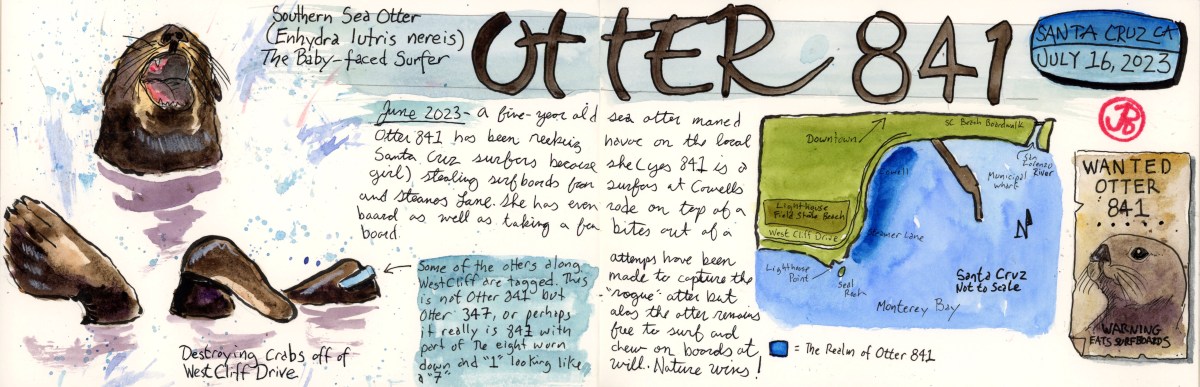 Southern Sea Otter
(Enhydra lutris nereis)
The Baby-faced Surfer
OttER 841
SANTA CRUZ CA
JULY 16, 2023
June 2023- a five-year old sea otter named
Otter 841 has been reeking havoc on the local
Santa Cruz surfers because she (yes 841 is a
girl) stealing surfboards from surfers at Cowells
and Steamers Lane. She has even rode on top of a
board as well as taking a few bites out of a
board.
Some of the otters along
West Cliff are tagged. This
is not Otter 341 but
Otter 347, or perhaps
it really is 841 with
part of the eight worn
down and "1" looking like
a "7"
attemps have been
made to capture the
"rogue" otter but
alas the otter remains
free to surf and
chew on boards at
will. Nature wins!
Destroying Crabs off of
West Cliff Drive
Downtown
SC Beach Boardwalk
San
Lorenzo
River
Municipal
Wharf
Cowell
Lighthouse
Field State Beach
West Cliff Drive
Steamer Lane
Lighthouse
Point
Seal
Rock
N
Santa Cruz
Not to Scale
Monterey Bay
= The Realm of Otter 841
WANTED
OTTER
841
WARNING
EATS SURFBOARDS